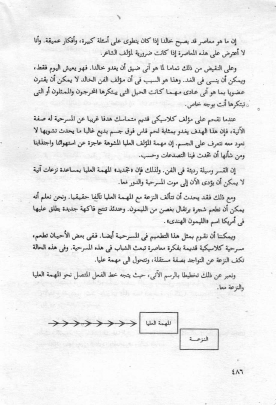 إن ما هو معاصر قد يصبح خالدا إذا كان ينطوى على أسئلة كبيرة، وأفكار عميقة. وأنا
لا أعترض على هذه المعاصرة إذا كانت ضرورية لمؤلف الشاعر.
وعلى النقيض من ذلك تماما كل ما هو آنى ضيق أن يغدو خالدا. فهو يعيش اليوم فقط،
ويمكن أن ينسى فى الغد. وهذا هو السبب فى أن مؤلف الفن الخالد لا يمكن أن يقترن
عضويا بما هو آنى عادى مهما كانت الحيل التى يبتكرها المخرجون والممثلون أو التى
تبتكرها أنت بوجه خاص.
عندما نقحم على مؤلف كلاسيكى قديم متماسك هدفا غريبا عن المسرحية له صفة
الآنية، فإن هذا الهدف يغدو بمثابة لحم فاس فوق جسم بديع غالبا ما يحدث تشويها لا
نعود معه نتعرف على الجسم. إن مهمة المؤلف العليا المشوهة عاجزة عن استهوائنا واجتذابنا
ومن شأنها أن تحدث فينا التصدعات وحسب.
إن القسر وسيلة رديئة فى الفن. ولذلك فإن «تجديد» المهمة العليا بمساعدة نزعات آنية
لا يمكن أن يؤدى الآن إلى موت المسرحية والدور معا.
ومع ذلك فقد يحدث أن تتآلف النزعة مع المهمة العليا تآلفا حقيقيا. ونحن نعلم أنه
يمكن أن نطعم شجرة برتقال بغصن من الليمون. وعندئذ تنتج فاكهة جديدة يطلق عليها
فى أمريكا اسم «الليمون الهندى».
ويمكننا أن نقوم بمثل هذا التطعيم فى المسرحية أيضا. ففى بعض الأحيان نطعم،
مسرحية كلاسيكية قديمة بفكرة معاصرة تبعث الشباب فى هذه المسرحية. وفى هذه الحالة
تكف النزعة عن التواجد بصفة مستقلة، وتتحول إلى مهمة عليا.
ونعبر عن ذلك تخطيطا بالرسم الآتى، حيث يتجه خط الفعل المتصل نحو المهمة العليا
والنزعة معا.
المهمة العليا
النزعـة
٤٨٦